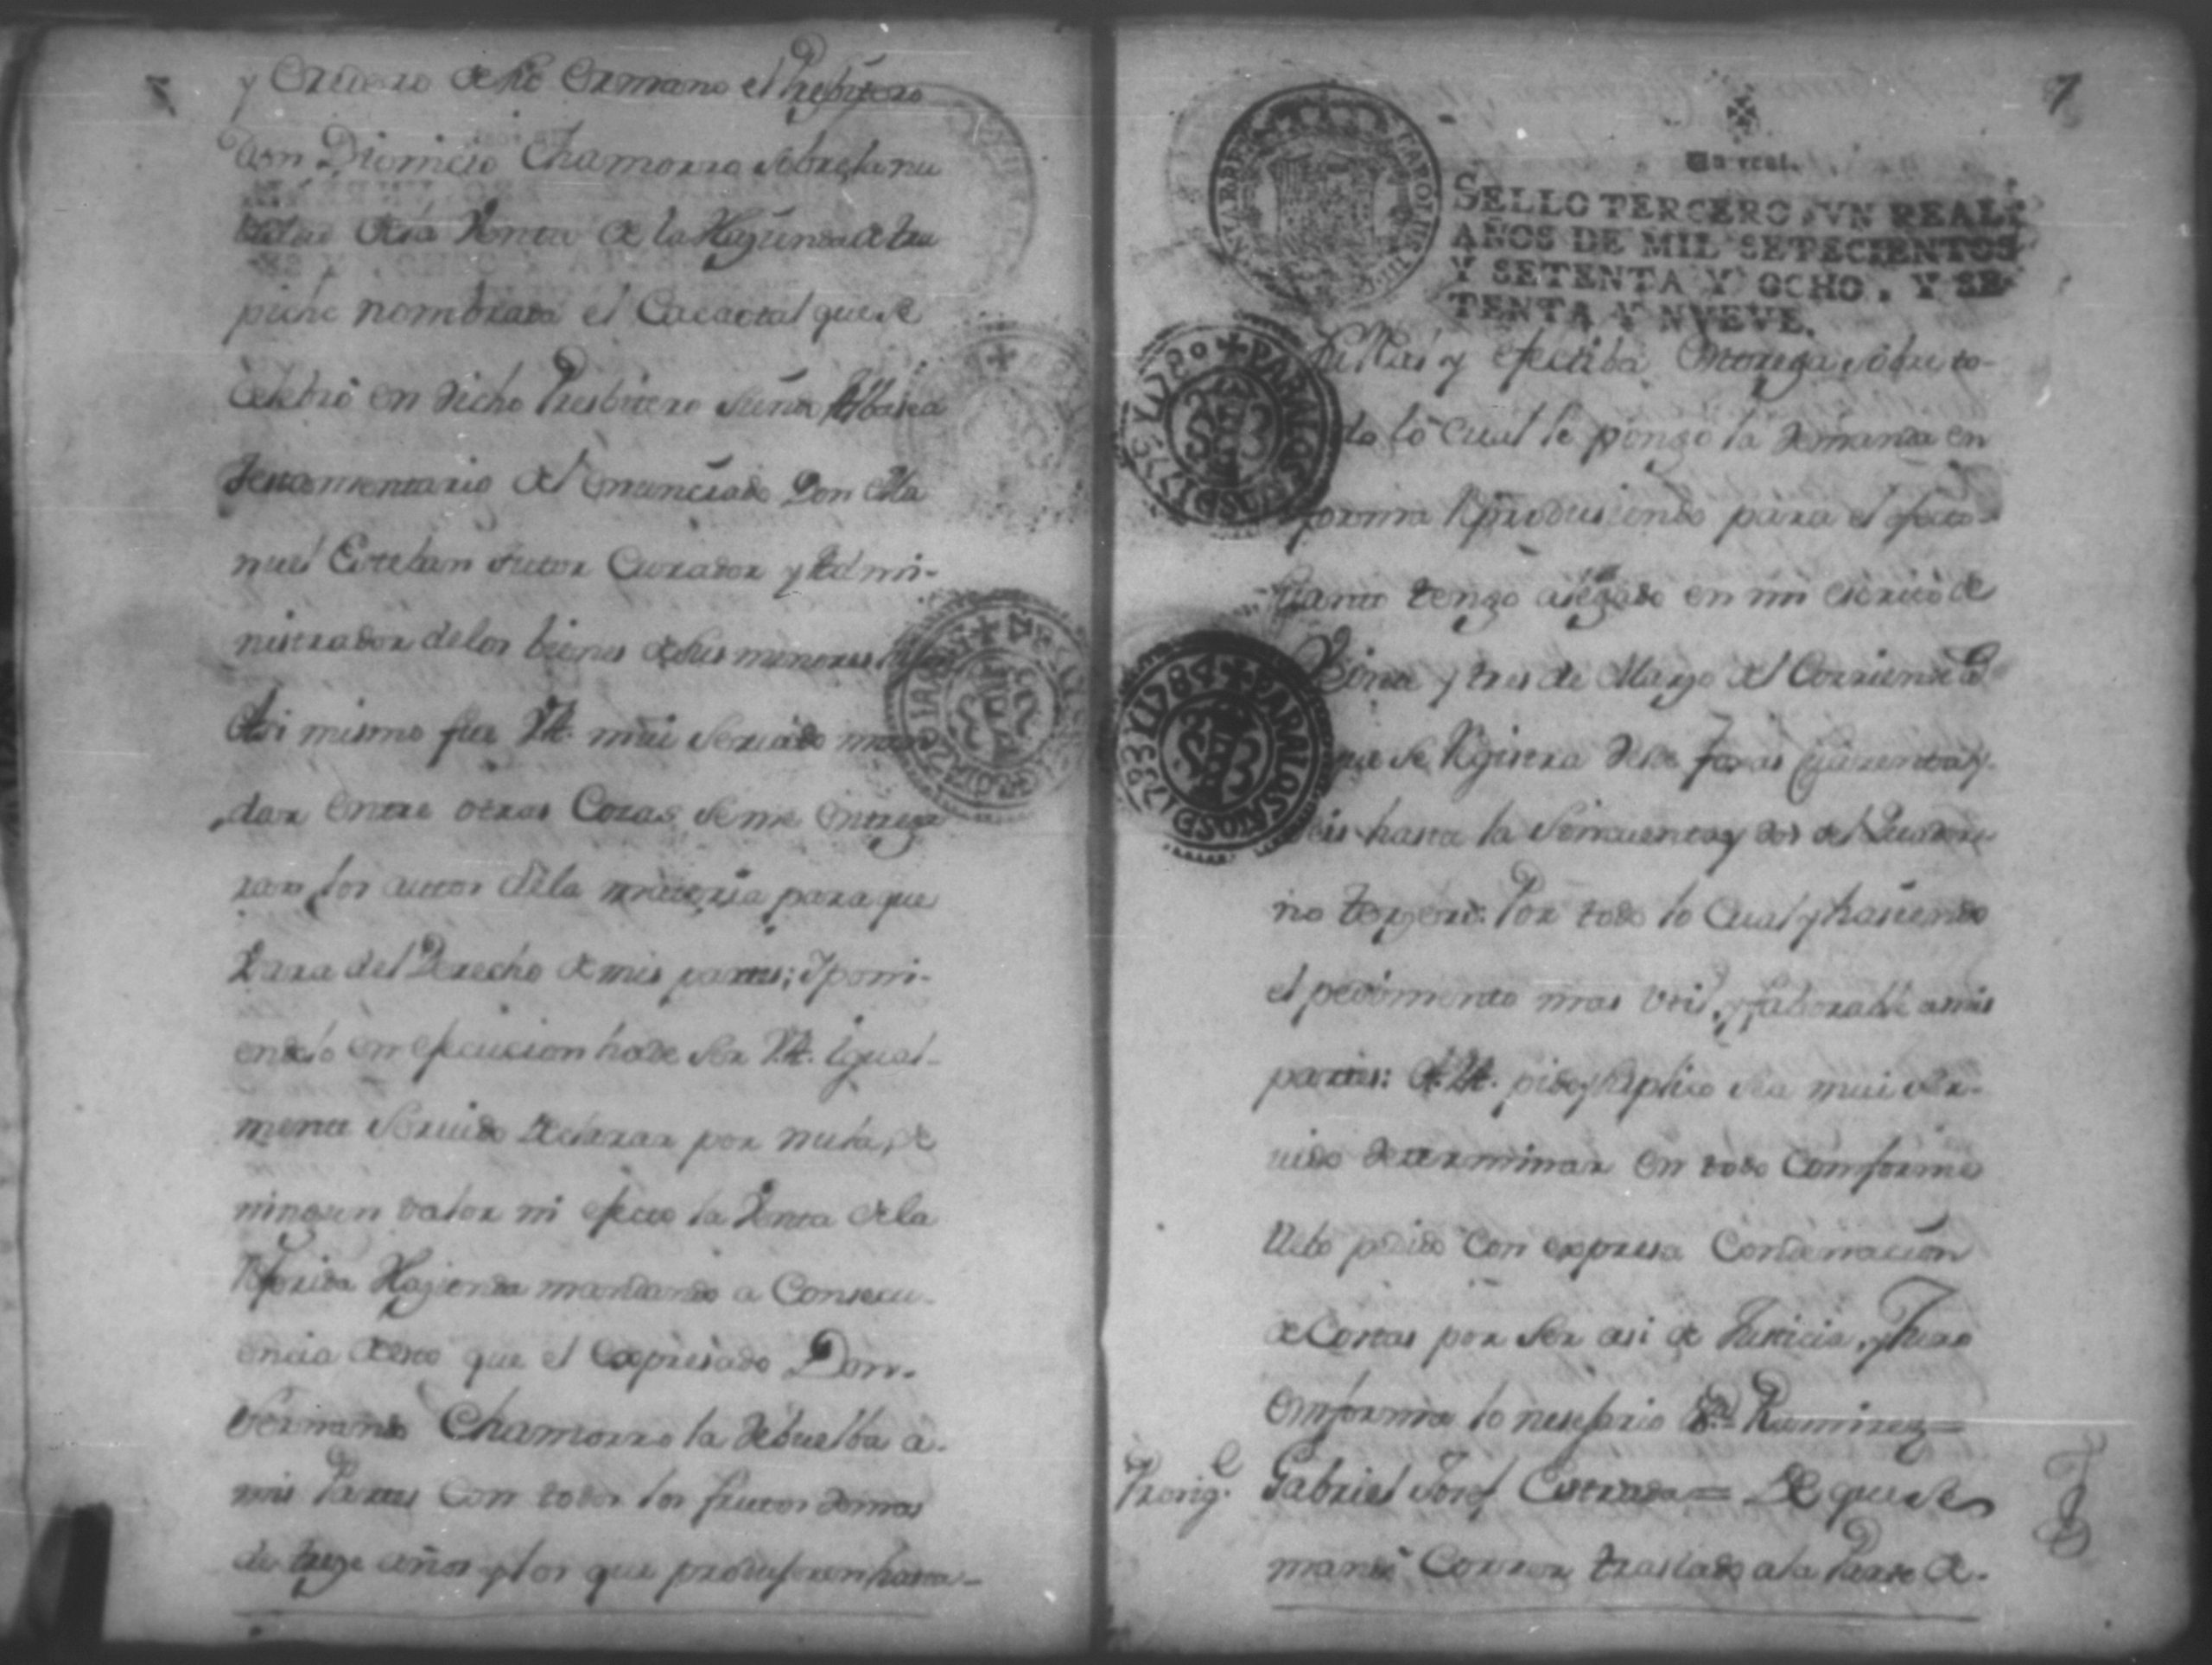 y Eredero de su Ermano el Presbitero
Don Dionicio Chamorro sobre la nu
de la Venta de la Hazienda de tra
piche nombrada el Cacaotal que se
Celebró en dicho Presbitero siendo Albasea
testamentario del enunciado Don Ma
nuel Esteban tutor Curador y Admi-
nistrador de los bienes de sus menores
Asi mismo fue VA. mui servido man
dar entre otras Cozas se me entrega
ran los autos de la materia para que
uzara del Derecho de mis partes; y poni-
endolo en efecucion ha de ser VA. igual-
mente servido declarar por nula, de
ningun valor ni efecto la Venta de la
Referida Hazienda mandando a Consecu-
encia de esto que el expresado Don
Fernando Chamorro la debuelba a
mis Partes con todos los frutos de mas
de treze años y los que produjeren hasta
7
Un real.
SELLO TERCERO, VN REAL,
AÑOS DE MIL SETECIENTOS
Y SETENTA Y OCHO, Y SE-
TENTA Y NVEVE.
CAROLUS III
PARA LOS AÑOS D 1779 Y 1780
PARA LOS AÑOS D 1783 Y 1784
su Real y efectiba entrega sobre to-
do lo cual le pongo la demanda en
forma Reproduciendo para el efecto
quanto tengo alegado en mi escrito de
Veinte y tres de Marzo del Corriente
que se Registra desde foxas quarenta y
seis hasta la sinquenta y dos del Quader
no terzero: Por todo lo Cual y haciendo
el pedimento mas util, y faborable a mis
partes: A VA. pido y suplico sea mui ser-
vido determinar en todo Comforme
llebo pedido con expresa Condenacion
de Costas por ser asi de Justicia, y Juro
en forma lo nesesario Ramirez =
Gabriel Josef Estrada = De que se
mandó Correr traslado a la Parte de